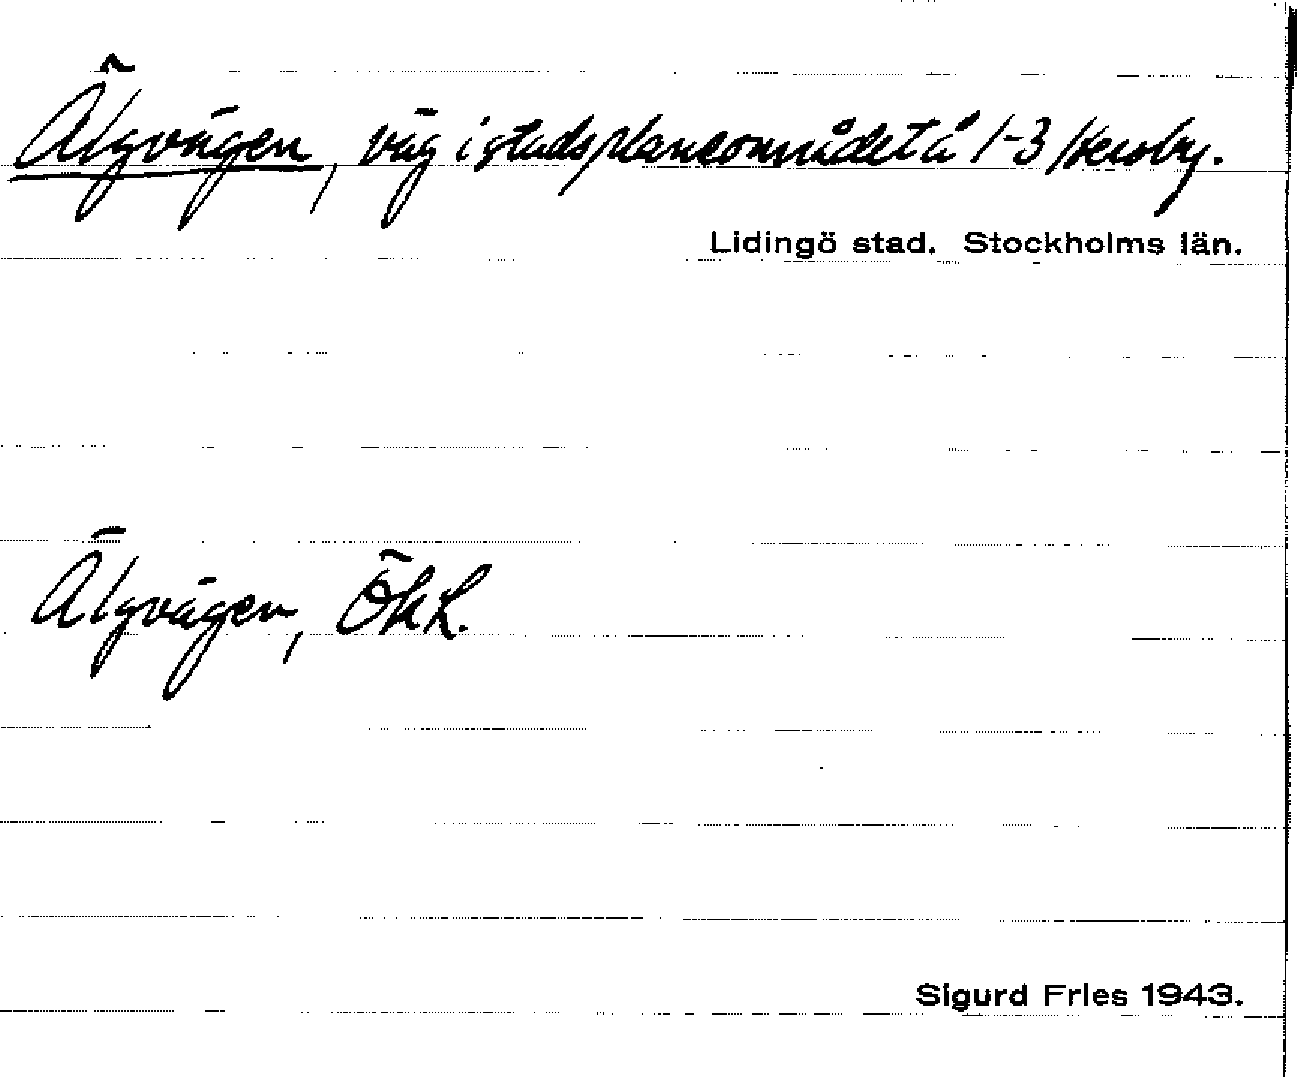 Älgvägen, väg i stadsplaneområdet å 1-3 Hersby.
Lidingö stad. Stockholms län.
Älgvägen, ÖkL.
Sigurd Fries 1943.